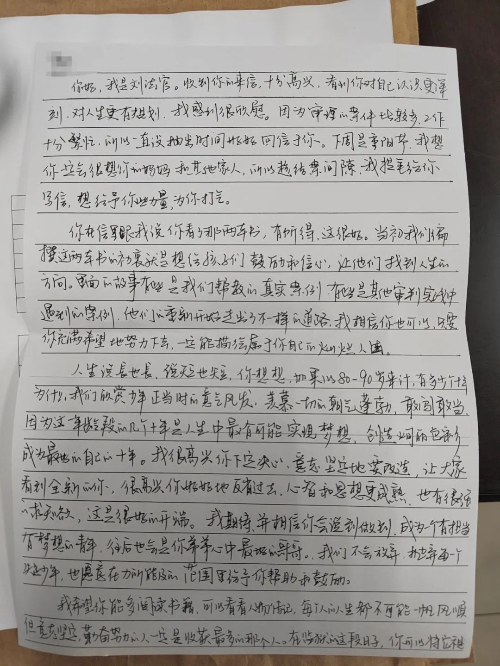 你好，我是刘法官。收到你的来信，十分高兴，看到你对自己认识更深
刻，对人生更有规划，我感到很欣慰。因为审理的案件比较多，工作
十分繁忙，所以一直没抽出时间好好回信于你。下周是重阳节，我想
你一定会很想你的妈妈和其他家人，所以趁结案间隙，我提笔给你
写信，想给予你些力量，为你打气。
你在信里跟我说你看了那两本书，有所得，这很好。当初我们编
撰这两本书的初衷就是想给孩子们鼓励和信心，让他们找到人生的
方向。里面的故事有些是我们帮教的真实案例，有些是其他审判实践中
遇到的案例，他们重新开始走出了不一样的道路，我相信你也可以，只要
你充满希望地努力下去，一定能描绘属于你自己的灿烂人
人生说长也长，说短也短，你想想，如果以80-90岁来计，有多少个十年
为什么我们欣赏少年正当时的意气风发，羡慕一切的朝气蓬勃，敢闯敢当，
因为这一年龄段的几个十年是人生中最有可能实现梦想，创造
成为最好的自己的十年。我很高兴你下定决心，意志坚定地要改造，让大家
看到全新的你，很高兴你好好地反省过去，心智和思想更成熟，也有很强
的求知欲，这是很好的开端。我期待并相信你会说到做到，成为一个有担当
有梦想的青年，往后也会是你爷爷心中最好的哥哥。我们不会放弃
少年，也愿意在力所能及的范围里给予你帮助和鼓励。
我希望你能多阅读书籍，可以看看人物传记，每个人的人生都不可能一帆风顺
但意志坚定，勤奋努力的人一定是收获最多的那个人。在监狱的这段日子，你可以将它